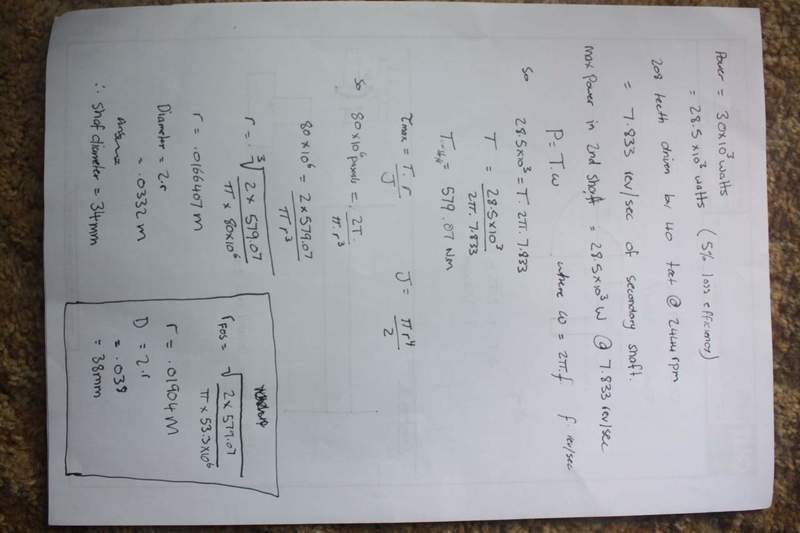 Power = 30x10³ watts
= 28.5 x 10³ watts (5% loss efficiency)
208 teeth driven by 40 teet @ 2444 rpm
= 7.833 rev/sec of secondary shaft.
max power in 2nd shaft = 28.5x10³ W @ 7.833 rev/sec
P = T.ω where ω = 2π.f f rev/sec
so 28.5x10³ = T. 2π. 7.833
T = 28.5x10³ / 2π. 7.833
T = 579.07 Nm
τmax = T.r / J J = πr⁴ / 2
so 80x10⁶ pascals = 2T / π.r³
80x10⁶ = 2x579.07 / πr³
r = ³√(2 x 579.07 / π x 80x10⁶)
r = .0166407 M
Diameter = 2.r
= .0332 m
∴ Shaft diameter = 34mm
rFOS = √(2 x 579.07 / π x 53.3x10⁶)
r = .01904 M
D = 2.r
= .038
= 38mm